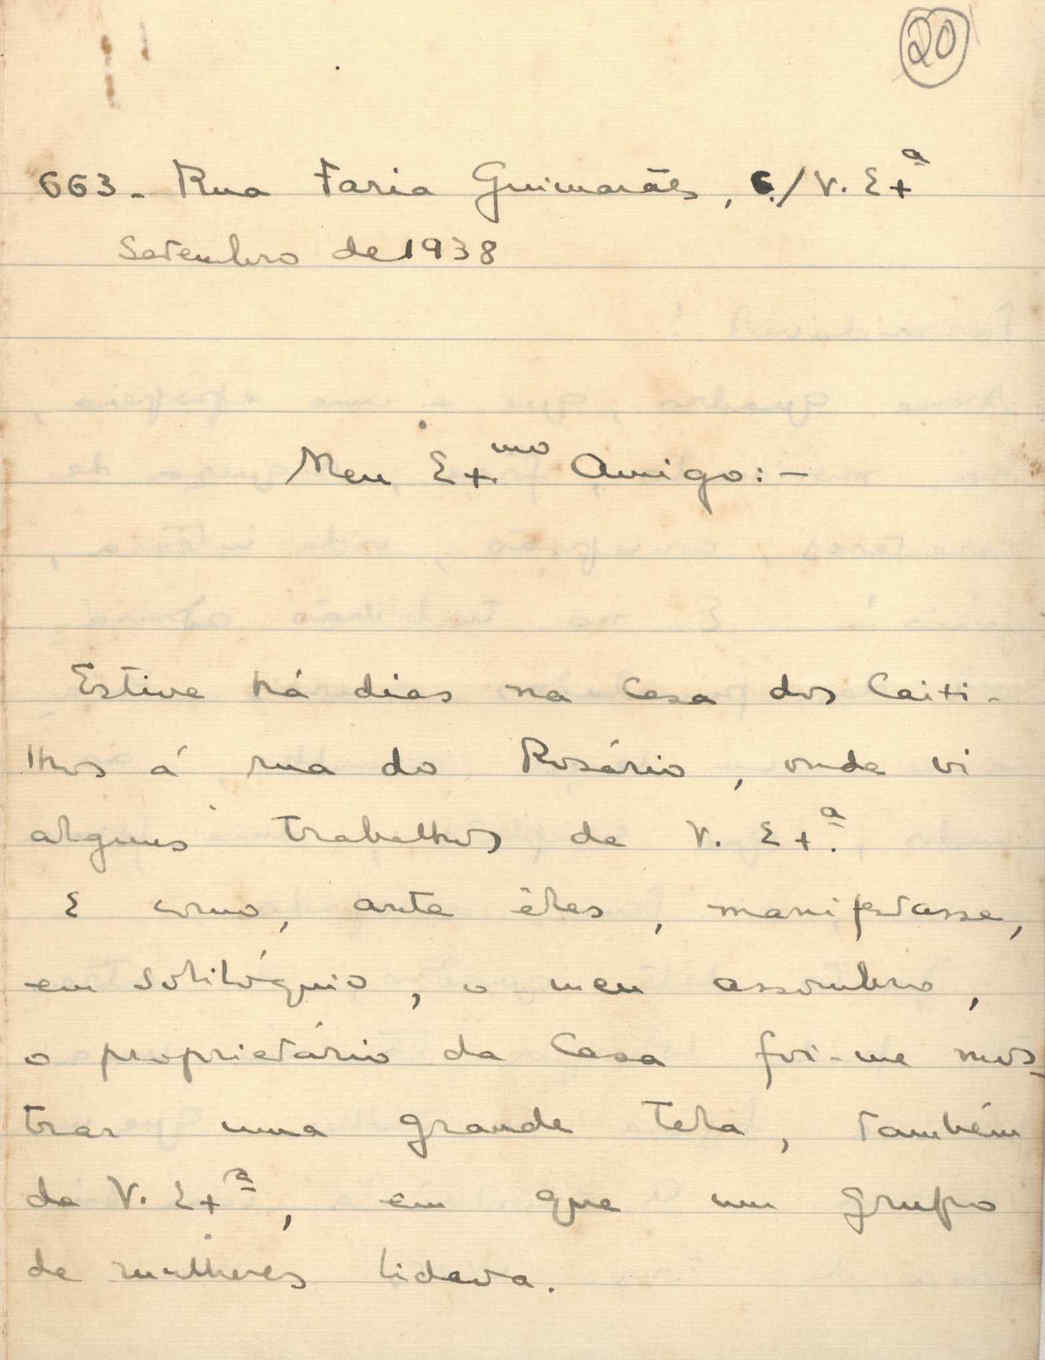 20
663- Rua Faria Guimarães, c/ V. Exª
Setembro de 1938
Meu Ex.mo Amigo:-
Estive há dias na Casa dos Caiti-
lhos á rua do Rosário, onde vi
alguns trabalhos de V. Ex.ª
E como, ante êles, manifestasse,
em solilóquio, o meu assombro,
o proprietário da Casa foi-me mos-
trar uma grande tela, também
de V. Exª, em que um grupo
de mulheres lidava.